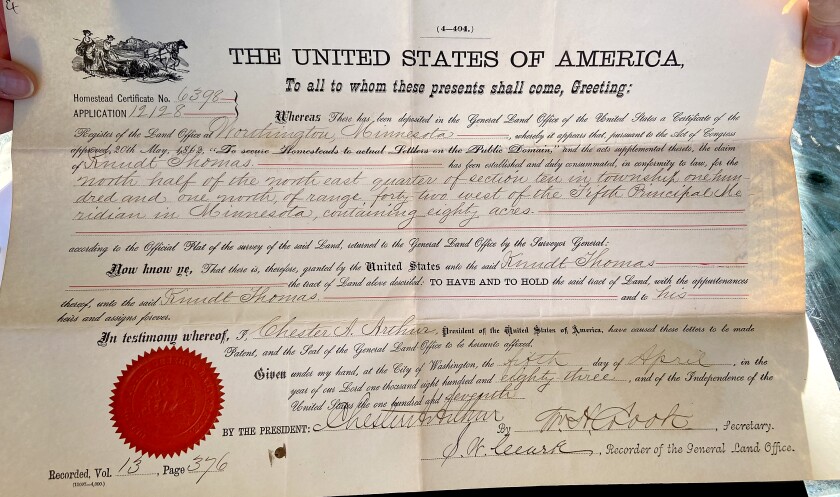 (4—404.)
THE UNITED STATES OF AMERICA,
To all to whom these presents shall come, Greeting:
Homestead Certificate No. 6398
APPLICATION 12128
Whereas There has been deposited in the General Land Office of the United States a Certificate of the
Register of the Land Office at Worthington, Minnesota, whereby it appears that, pursuant to the Act of Congress
approved, 20th May, 1862, "To secure Homesteads to actual Settlers on the Public Domain," and the acts supplemental thereto, the claim
of Knudt Thomas. has been established and duly consummated, in conformity to law, for the
north half of the north east quarter of section ten in township one hun-
dred and one north, of range, forty two west of the Fifth Principal Me
ridian in Minnesota, containing eighty acres.
according to the Official Plat of the survey of the said Land, returned to the General Land Office by the Surveyor General:
Now know ye, That there is, therefore, granted by the United States unto the said Knudt Thomas
the tract of Land above described: TO HAVE AND TO HOLD the said tract of Land, with the appurtenances
thereof, unto the said Knudt Thomas. and to his
heirs and assigns forever.
In testimony whereof, I, Chester A. Arthur, President of the United States of America, have caused these letters to be made
Patent, and the Seal of the General Land Office to be hereunto affixed.
Given under my hand, at the City of Washington, the fifth day of April, in the
year of our Lord one thousand eight hundred and eighty three, and of the Independence of the
United States the one hundred and seventh
BY THE PRESIDENT: Chester A Arthur
By Wm H. Cook, Secretary.
S. W. Clark, Recorder of the General Land Office.
Recorded, Vol. 13, Page 376